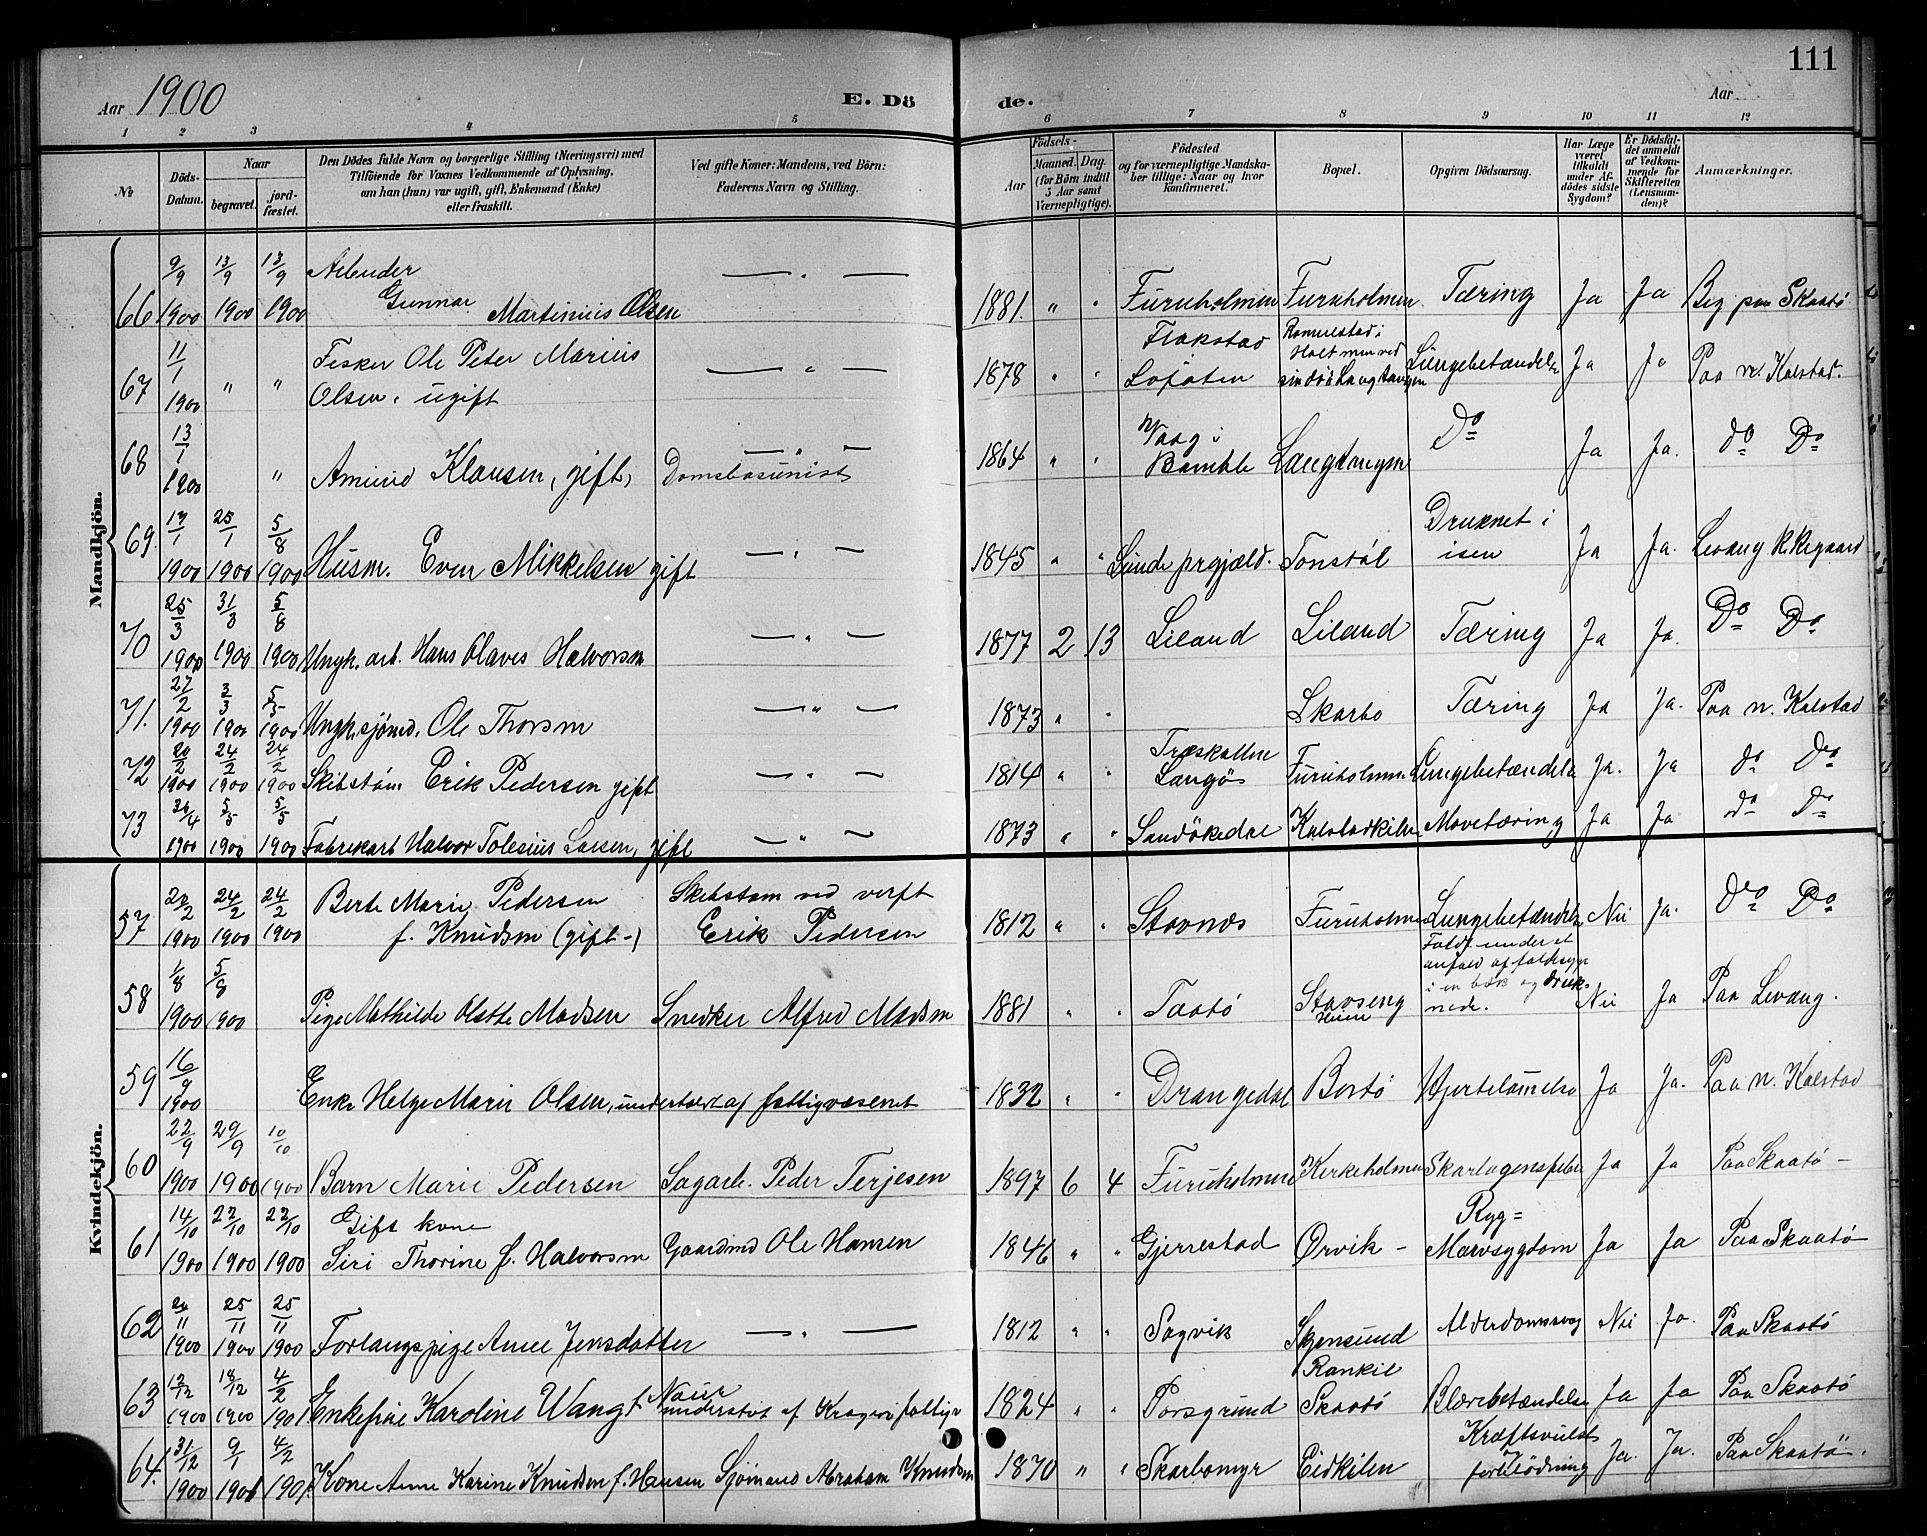 111
Aar 1900 E. Dö de. Aar
1 2 3 4 5 6 7 8 9 10 11 12
№
Döds-Datum.
Naar
begravet.
jord-fæstet.
Den Dödes fulde Navn og borgerlige Stilling (Næringsvei) med
Tilföiende for Voxnes Vedkommende af Oplysning,
om han (hun) var ugift, gift, Enkemand (Enke)
eller fraskilt.
Ved gifte Koner: Mandens, ved Börn:
Faderens Navn og Stilling.
Födsels-
Aar
Maaned. Dag.
(for Börn indtil
5 Aar samt
Værnepligtige).
Födested
og for værnepligtige Mandska-
ber tillige: Naar og hvor
konfirmeret.
Bopæl.
Opgiven Dödsaarsag.
Har Læge
været
tilkaldt
under Af-
dödes sidste
Sygdom?
Er Dödsfal-
det anmeldt
af Vedkom-
mende for
Skifteretten
(Lensman-
den)?
Anmærkninger.
Mandkjön.
66 9/9 1900 13/9 1900 13/9 1900 Arbeider Gunnar Martinius Olsen — " — 1881 " " Furuholmen Furuholmen Tæring Ja Ja Beg paa Skaatö
67 11/1 1900 " " Fesker Ole Peter Marius Olsen, ugift — " — 1878 " " Flakstad Lofoten Lungebetændelse Ja Ja Paa n. Kalstad.
68 13/1 1900 " Amund Klausen, gift, — " — Domsbasunist 1864 " " Vaag i Bamble Langtangen Do Ja Ja. do Do
69. 17/1 1900 25/1 1900 5/8 1900 Husm. Even Mikkelsen gift — " — 1845 " " Lunde prgjæld. Tonstöl Druknet i isen Ja Ja. Levang Kkegaard
70 25/3 1900 31/3 1900 5/8 1900 Ungk. arb. Hans Olaves Halvorsen — " — 1877 2 13 Liland Liland Tæring Ja Ja. Do Do
71. 27/2 1900 3/3 1900 5/5 1900 Ungk. sjömd. Ole Thorsen — " — 1873 " " Skarbo Tæring Ja Ja. Paa n. Kalstad
72 20/2 1900 24/2 1900 24/2 1900 Skibstöm. Erik Pedersen gift — " — 1814 " " Træskallen Langö Furuholmen Lungebetændelse Ja. Ja do Do
73 30/4 1900 5/5 1900 5/5 1900 Fabrikarb Halvor Tolesius Larsen, gift — " — 1873 " " Sandökedal Kalstadkilen Mavetæring Ja Ja do Do
Kvindekjön.
57 20/2 1900 24/2 1900 24/2 1900 Berte Marie Pedersen f. Knudsen (gift-) Skibstöm ved verft Erik Pedersen 1812 " " Stavnæs Furuholmen Lungebetændelse Nei Ja. Do Do
58 1/8 1900 5/8 1900 Pige Mathilde Olette Madsen Snedker Alfred Madsen 1881 " " Taatö Stavseng Faldt under et anfald af faldsyge i en bæk og druknede. Nei Ja Paa Levang.
59 16/9 1900 Enke Helge Marie Olsen, understöttet af fattigvæsenet 1832 " " Drangedal Bortö Hjertelammelse Ja Ja. Paa n. Kalstad
60 22/9 1900 29/9 1900 10/10 1900 Barn Marie Pedersen Sagarb. Peder Terjesen 1897 6 4 Furuholmen Kirkeholmen Skarlagensfeber Ja Ja Paa Skaatö —
61 14/10 1900 22/10 1900 22/10 1900 Gift kone Siri Thorine f. Halvorsen Gaardmd Ole Hansen 1846 " " Gjerrestad Ørvik — Ryg= Marvsygdom Ja Ja Paa Skaatö
62 20/11 1900 25/11 1900 25/11 1900 Forlangspige Anne Jensdatter — " — 1812 " " Sagvik Skjensund Alderdomssvag Nei Ja. Paa Skaatö
63 12/12 1900 18/12 1900 4/2 1901 Enkefrue Karoline Wangt understöt af Kragerö fattigv 1824 " " Porsgrund Rankil Skaatö Blærebetændelse Ja Ja Paa Skaatö
64. 31/12 1900 9/1 1901 4/2 1901. Kone Anne Karine Knudsen f. Hansen Sjömand Abraham Knudsen 1870 " " Skarbomyr Eidkilen Kræftsvulst forblödning Ja. Ja. Paa Skaatö.